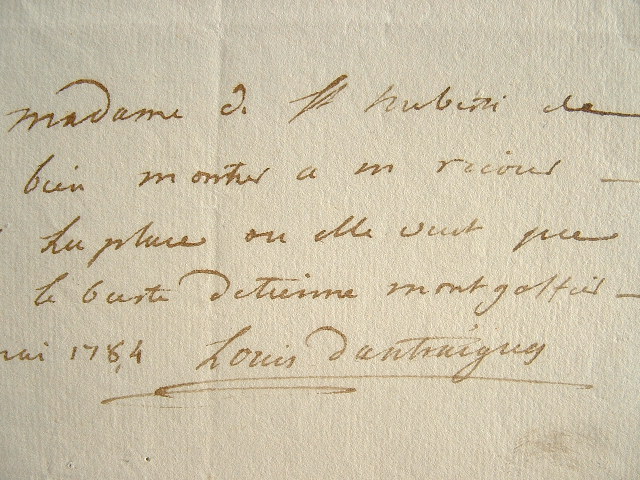 madame de St huberti de
bien montrer a m ricour
La place ou elle veut que
le buste detienne montgolfier
mai 1784 Louis dantraigues